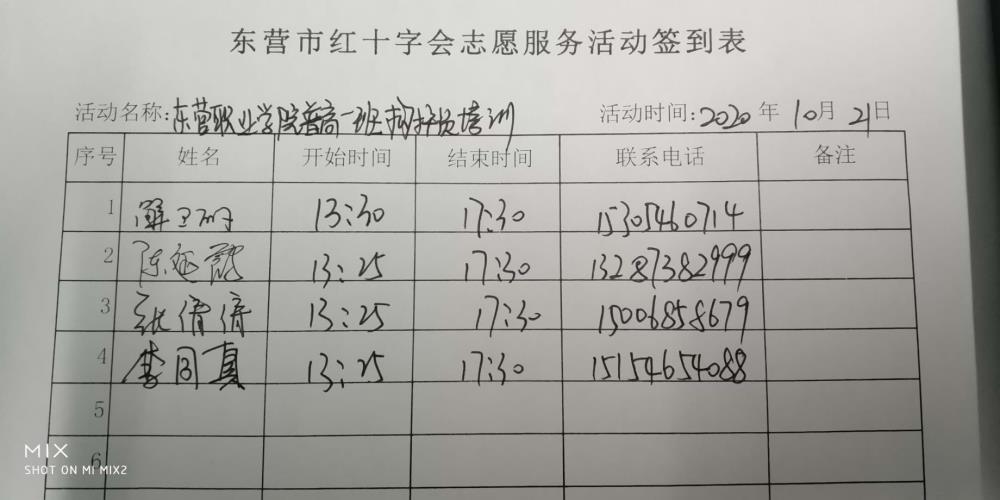 东营市红十字会志愿服务活动签到表
活动名称:东营职业学院普高一班救护员培训 活动时间:2020年10月21日
序号 姓名 开始时间 结束时间 联系电话 备注
1 解卫 13:30 17:30 15305460714
2 陈延 13:25 17:30 13287382999
3 张倩倩 13:25 17:30 15006858679
4 李同真 13:25 17:30 15154654088
5
6
MIX
SHOT ON MI MIX2